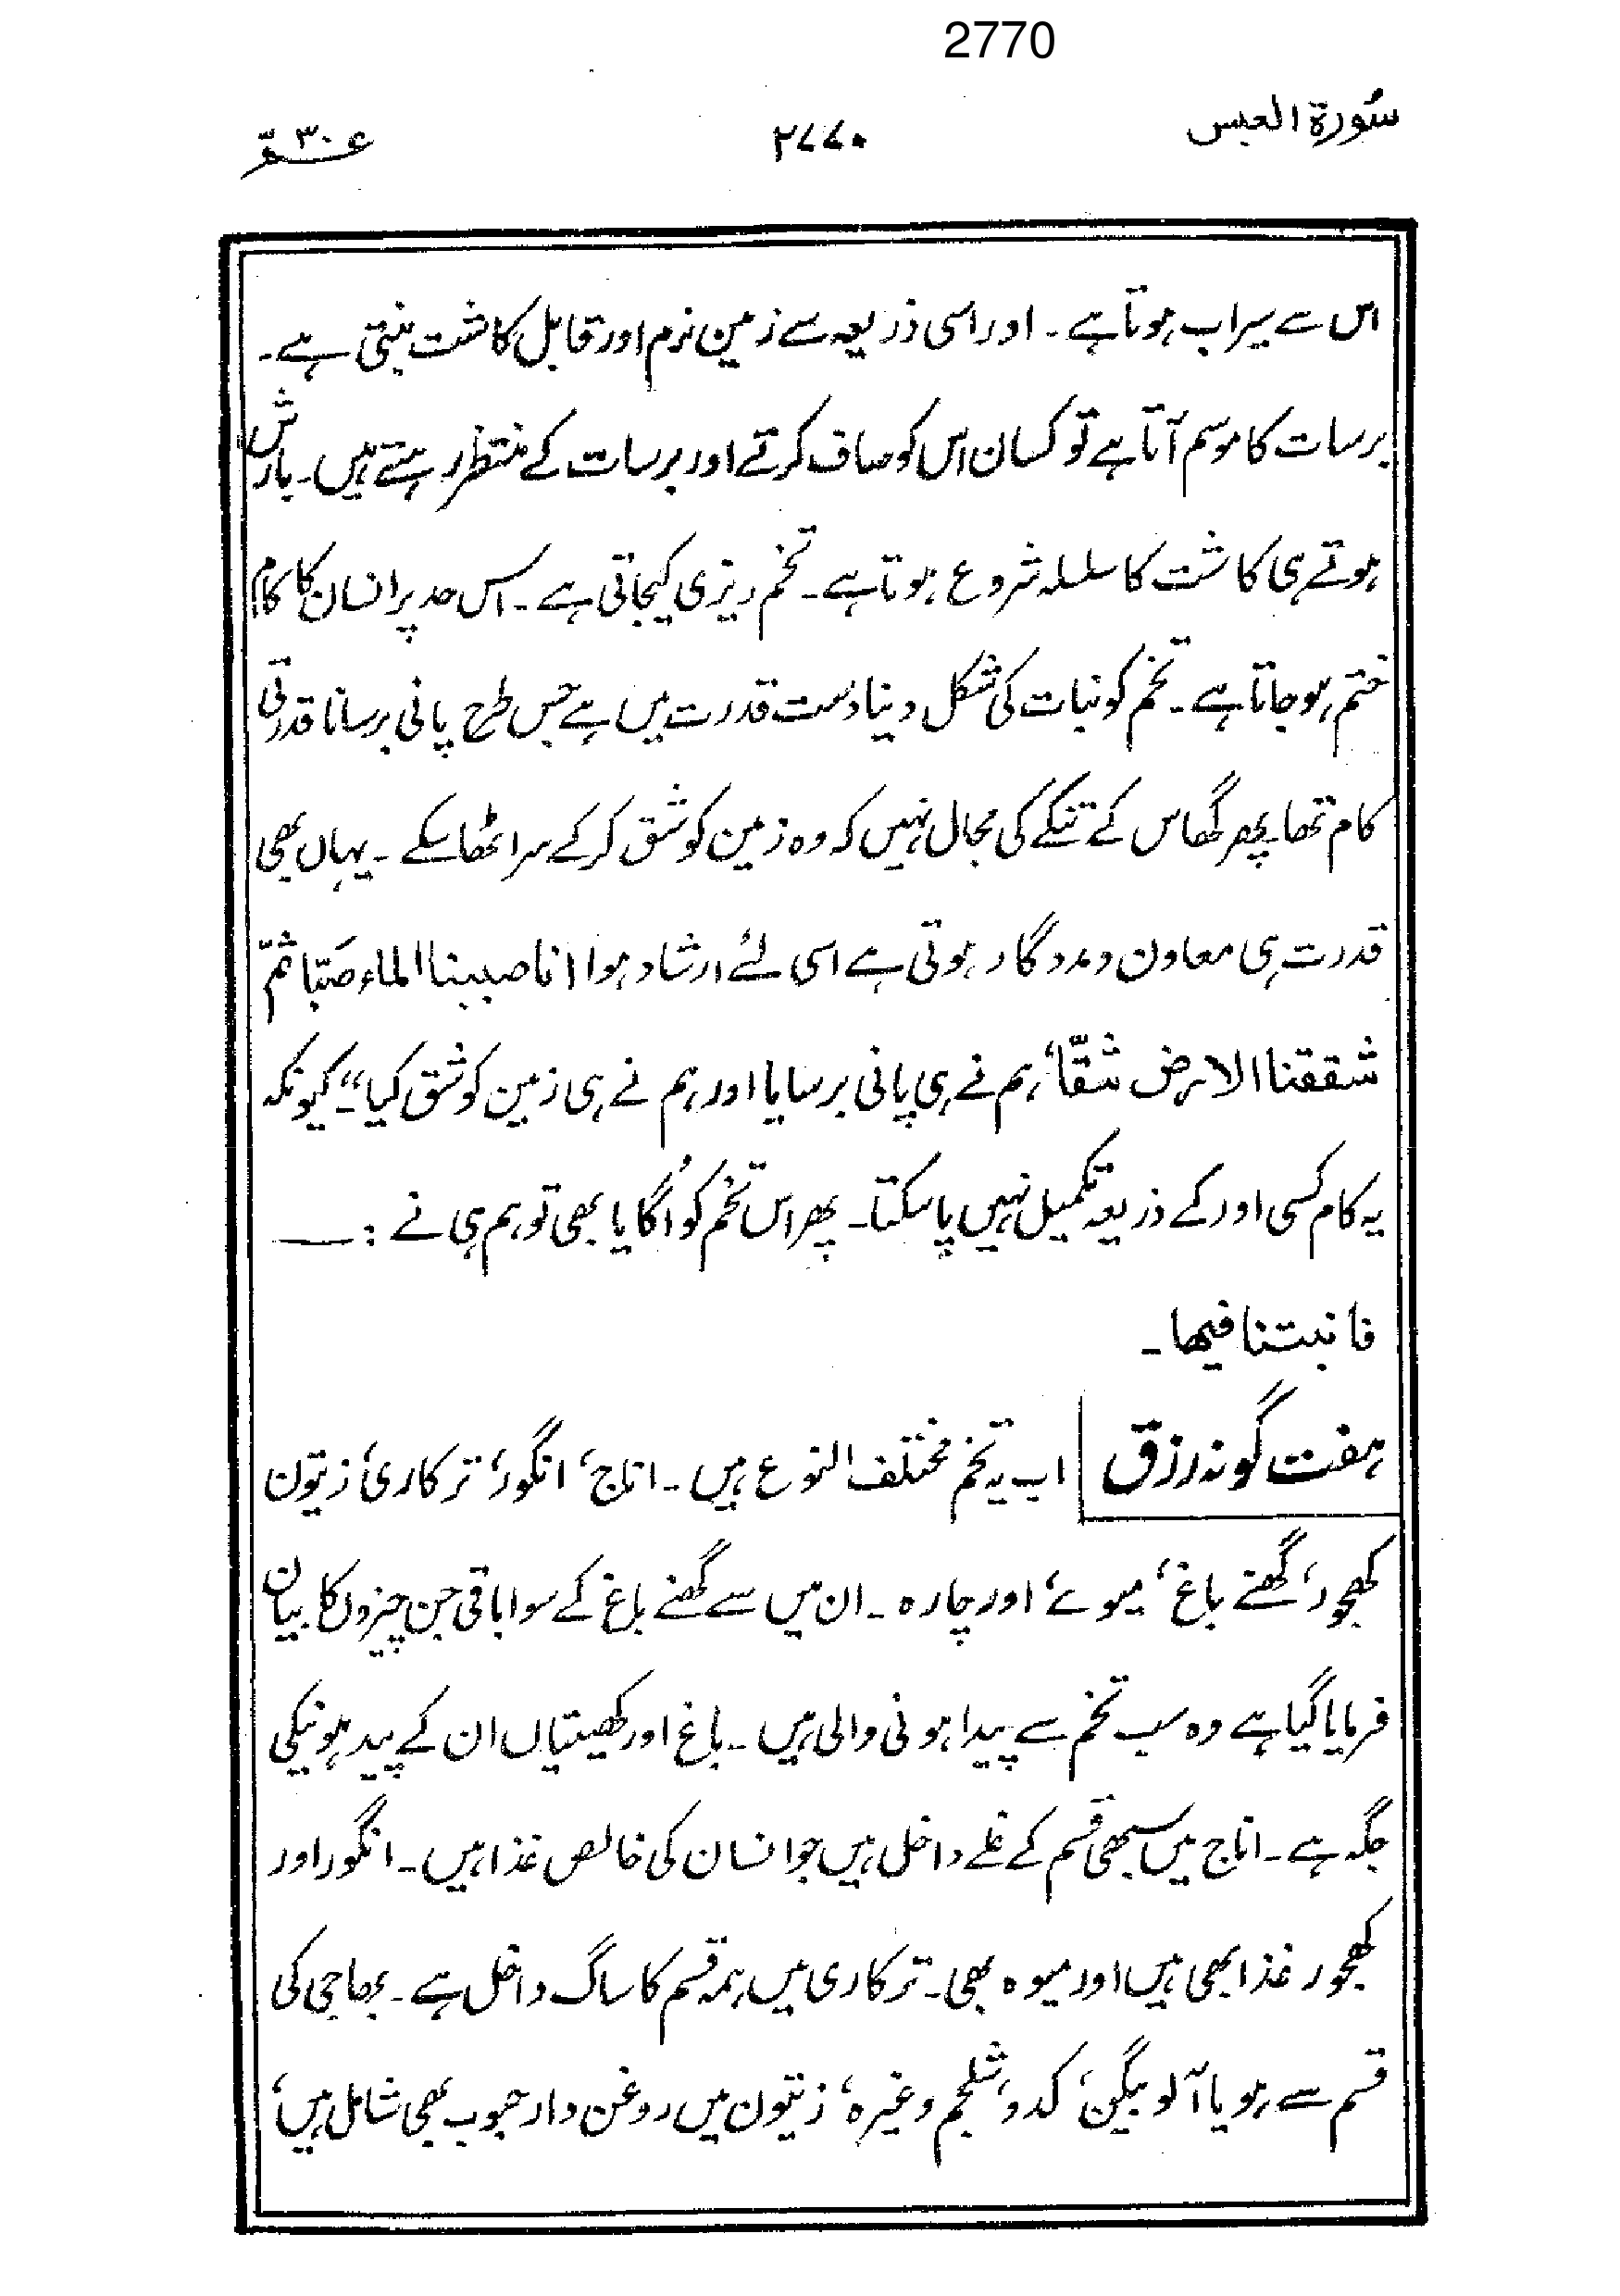 2770
سُورۃ العبس ۲۷۷۰ عـــم ۳۰
اس سے سیراب ہوتا ہے ۔ اور اسی ذریعہ سے زمین نرم اور قابل کاشت بنتی ہے۔
برسات کا موسم آتا ہے تو کسان اس کو صاف کرتے اور برسات کے منتظر رہتے ہیں۔ بارش
ہوتے ہی کاشت کا سلسلہ شروع ہوتا ہے۔ تخم ریزی کیجاتی ہے ۔ اس حد پر انسان کا کام
ختم ہوجاتا ہے ۔ تخم کو نبات کی شکل دینا دست قدرت میں ہے جس طرح پانی برسانا قدرتی
کام تھا۔ پھر گھاس کے تنکے کی مجال نہیں کہ وہ زمین کو شق کرکے سر اٹھا سکے ۔ یہاں بھی
قدرت ہی معاون و مددگار ہوتی ہے اسی لئے ارشاد ہوا انا صببنا الماء صَبّا ثمّ
شققنا الارض شقّا، ہم نے ہی پانی برسایا اور ہم نے ہی زمین کو شق کیا“۔ کیونکہ
یہ کام کسی اور کے ذریعہ تکمیل نہیں پاسکتا۔ پھر اس تخم کو اُگایا بھی تو ہم ہی نے : ـــــ
فانبتنا فیھا ۔
ہفت گونہ رزق اب یہ تخم مختلف النوع ہیں ۔ اناج، انگور، ترکاری، زیتون
کھجور، گھنے باغ، میوے، اور چارہ ۔ ان میں سے گھنے باغ کے سوا باقی جن چیزوں کا بیان
فرمایا گیا ہے وہ سب تخم سے پیدا ہونی والی ہیں ۔ باغ اور کھیتیاں ان کے پید ہونیکی
جگہ ہے ۔ اناج میں سبھی قسم کے غلے داخل ہیں جو انسان کی خالص غذا ہیں ۔ انگور اور
کھجور غذا بھی ہیں اور میوہ بھی۔ ترکاری میں ہمہ قسم کا ساگ داخل ہے ۔ بھاجی کی
قسم سے ہو یا آلو بیگن، کدو، شلجم وغیرہ، زیتون میں روغن دار حبوب بھی شامل ہیں،